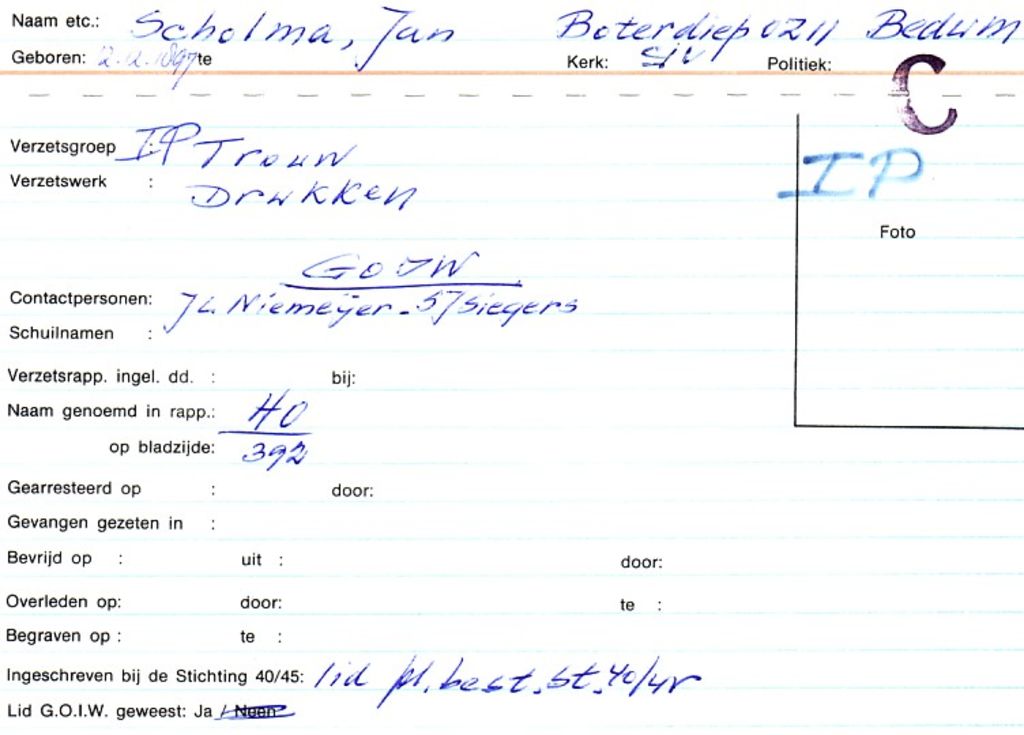 Naam etc.: Scholma, Jan Boterdiep 0211 Bedum
Geboren: 2.12.1897 te Kerk: Politiek: C
Verzetsgroep : IP Trouw
Verzetswerk : Drukken
IP
Foto
GOIW
Contactpersonen: JL Niemeijer - SJ Siegers
Schuilnamen :
Verzetsrapp. ingel. dd. : bij:
Naam genoemd in rapp.: HO
op bladzijde: 392
Gearresteerd op : door:
Gevangen gezeten in :
Bevrijd op : uit : door:
Overleden op: door: te :
Begraven op : te :
Ingeschreven bij de Stichting 40/45: lid pl. best. St. 40/45
Lid G.O.I.W. geweest: Ja / Neen